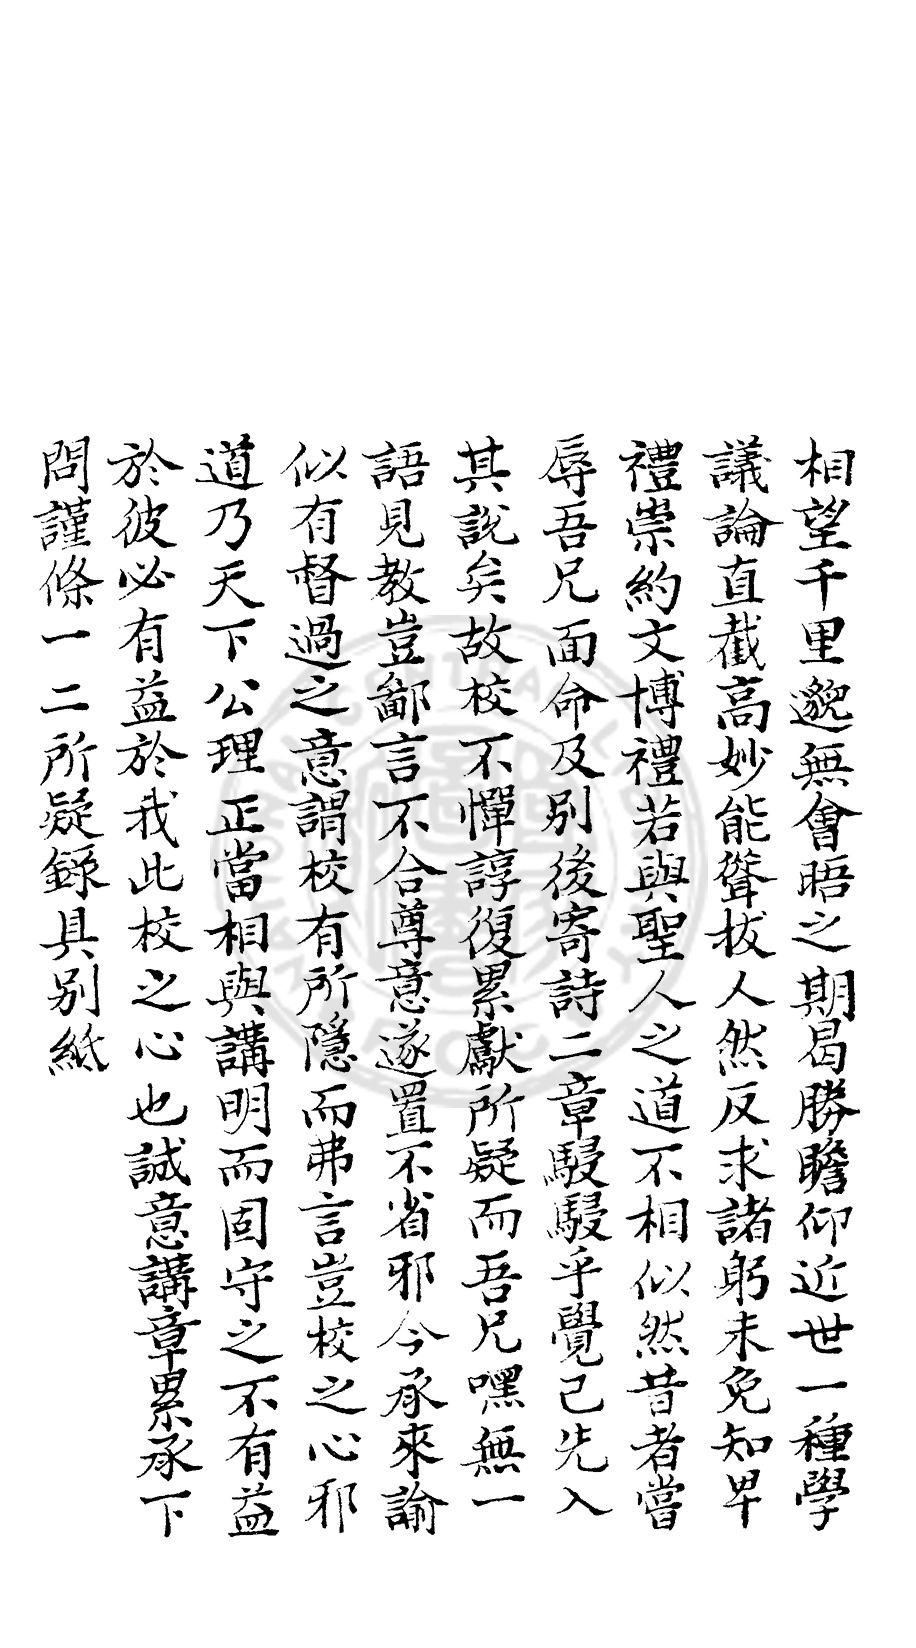 相望千里邈無會晤之期曷勝瞻仰近世一種學
議論直截高妙能聳拔人然反求諸躬未免知卑
禮崇約文博禮若與聖人之道不相似然昔者嘗
辱吾兄面命及别後寄詩二章駸駸乎覺已先入
其說矣故校不憚諄復累獻所疑而吾兄嘿無一
語見教豈鄙言不合尊意遂置不省邪今承來諭
似有督過之意謂校有所隱而弗言豈校之心邪
道乃天下公理正當相與講明而固守之不有益
於彼必有益於我此校之心也誠意講章累承下
問謹條一二所疑錄具别紙